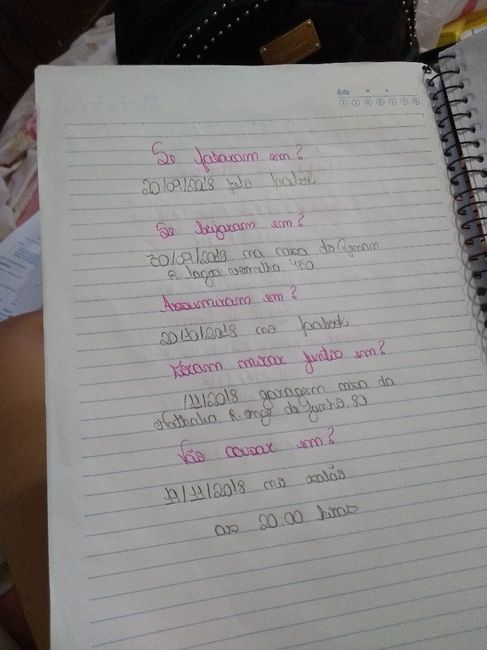 data
Se falaram em?
20/09/2018 pelo facebook
Se beijaram em?
30/09/2018 na casa do Renan
R. lagoa vermelha 130
Assumiram em?
20/10/2018 no facebook
Foram morar juntos em?
/11/2018 garagem casa da
Nathalia, R. onze de Junho, 80
Vão casar em?
17/11/2018 no salão
as 20:00 horas